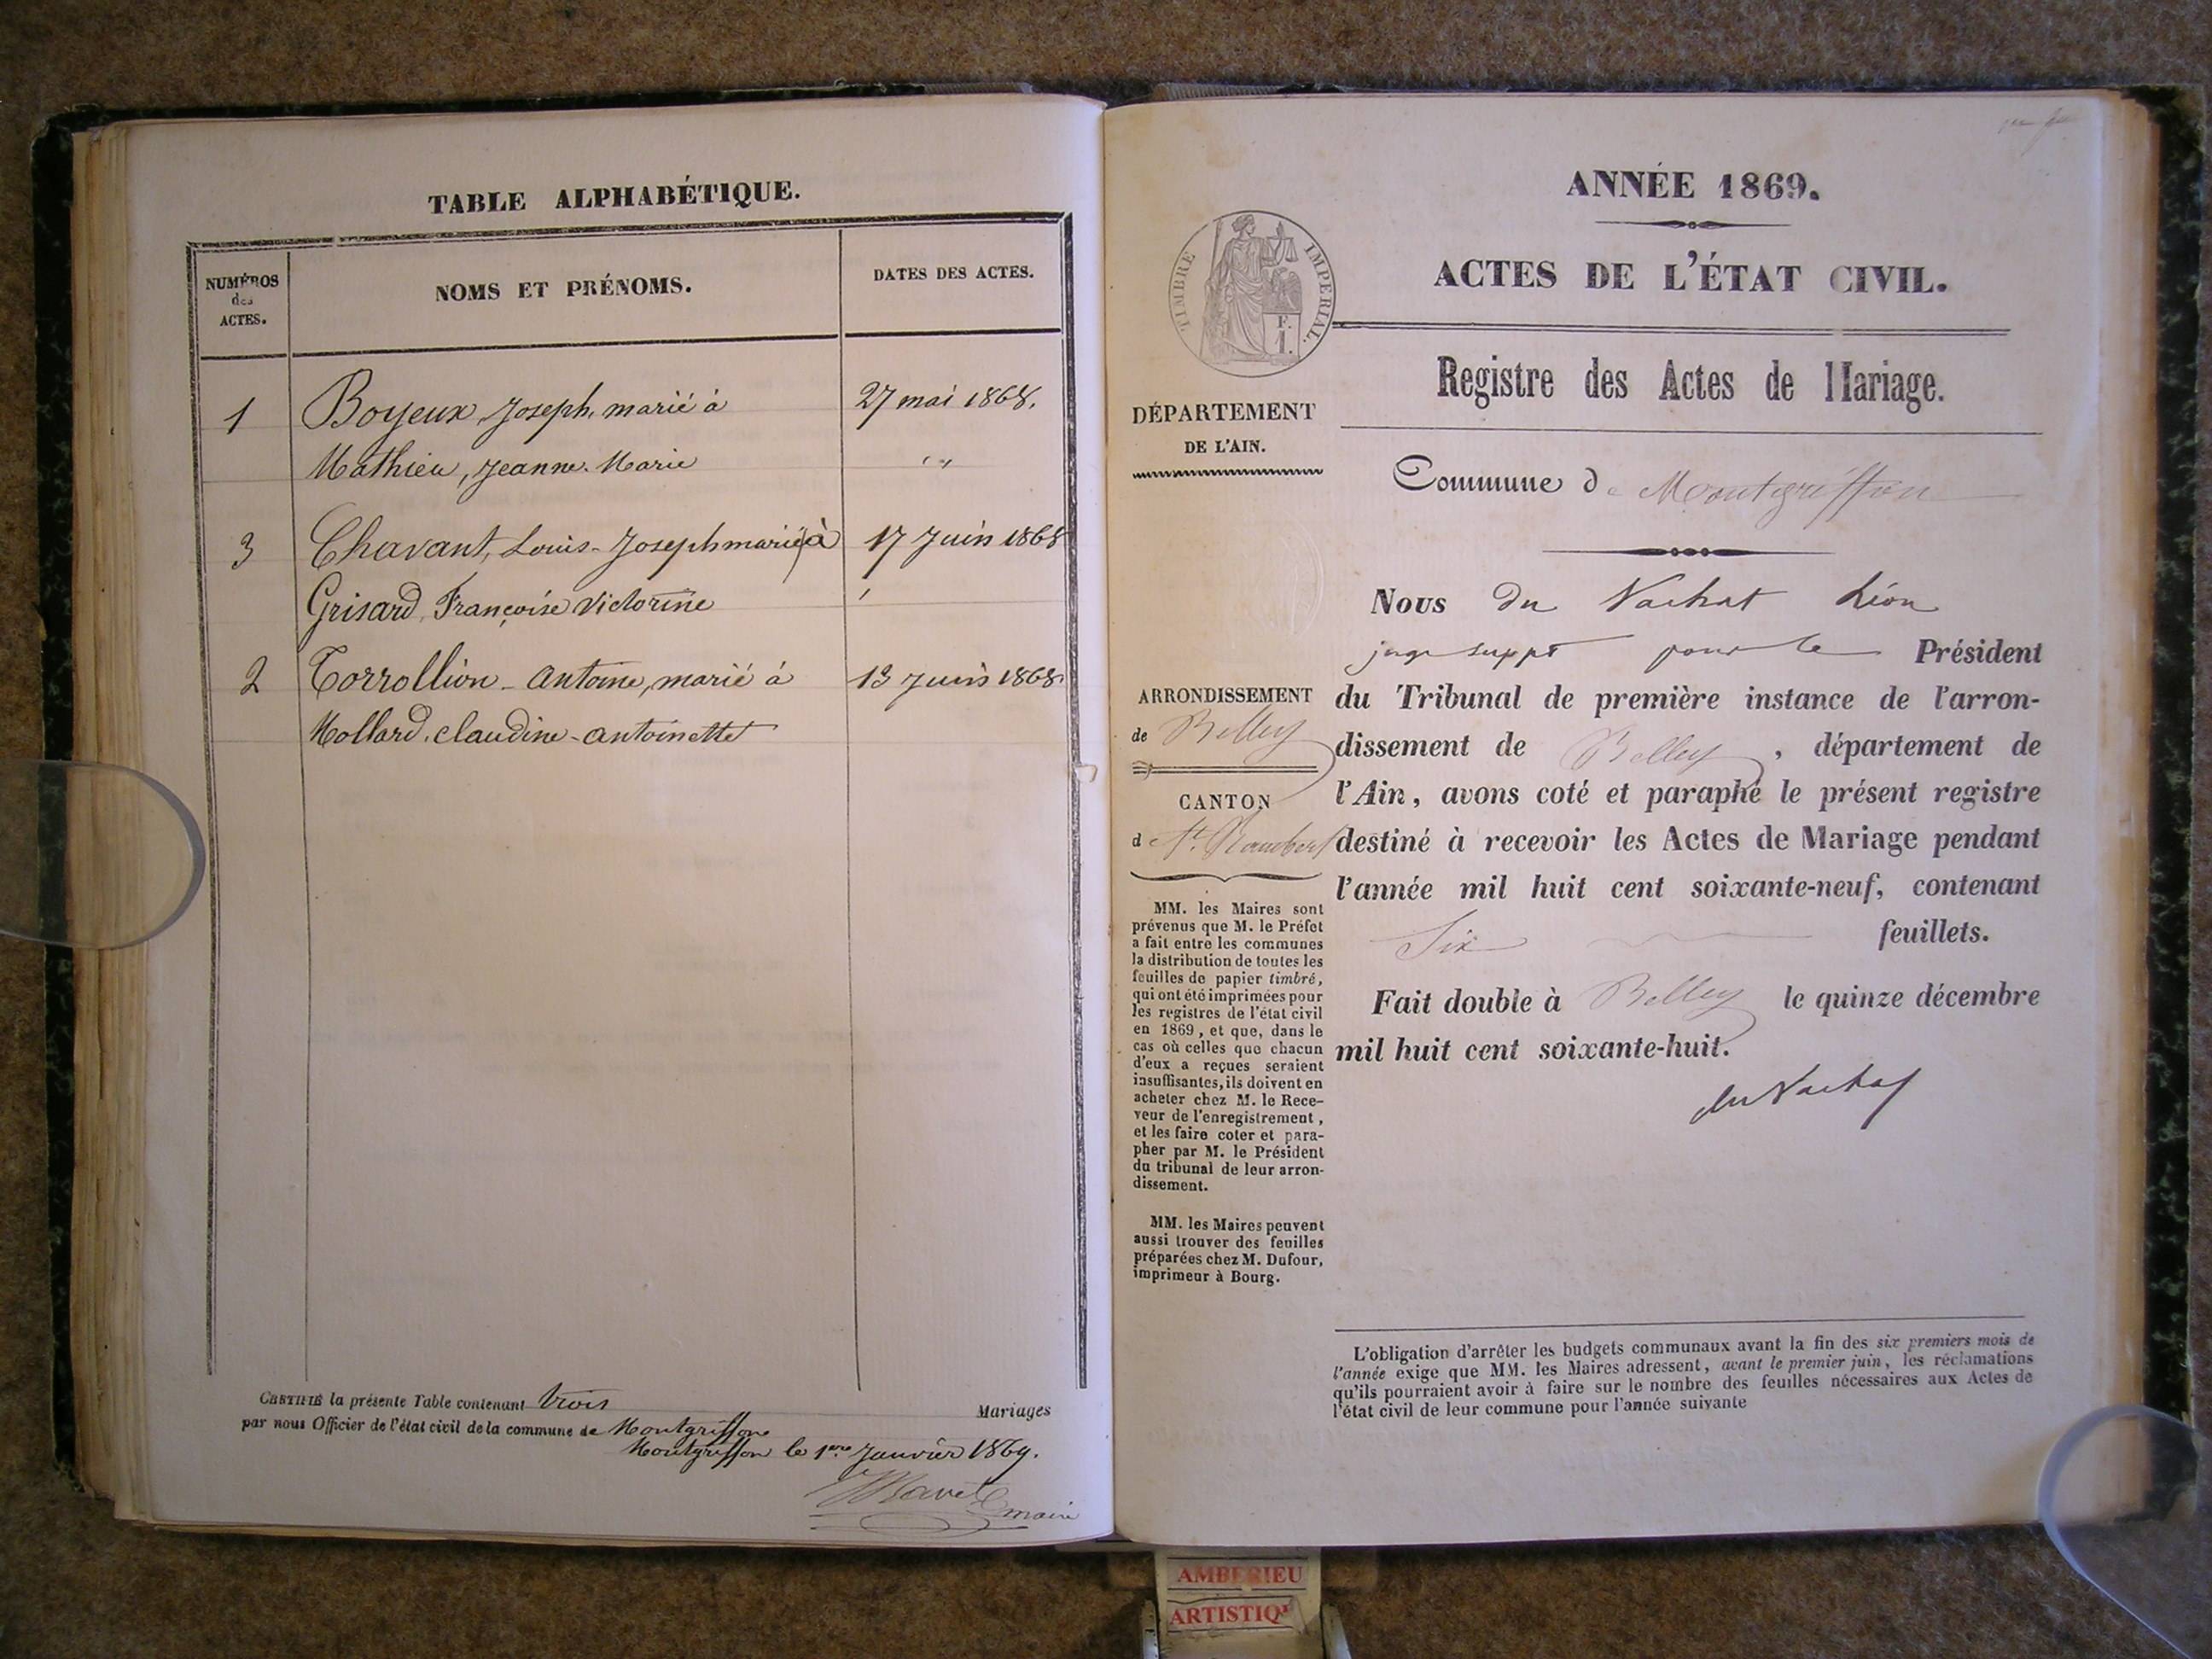 TABLE ALPHABÉTIQUE.
NUMÉROS
des
ACTES.
NOMS ET PRÉNOMS.
DATES DES ACTES.
1 Boyeux, Joseph, marié à 27 mai 1868.
Mathieu, Jeanne-Marie "
3 Chavant, Louis-Joseph marié à 17 Juin 1868
Grisard, Françoise Victorine
2 Torrollion-Antoine, marié à 13 Juin 1868
Mollard, Claudine-Antoinette
CERTIFIÉ la présente Table contenant trois Mariages
par nous Officier de l'état civil de la commune de Montgriffon
Montgriffon le 1er Janvier 1869.
maire
ANNÉE 1869.
ACTES DE L'ÉTAT CIVIL.
Registre des Actes de Mariage.
Commune de Montgriffon
TIMBRE IMPERIAL.
F.
1.
DÉPARTEMENT
DE L'AIN.
ARRONDISSEMENT
de Belley
CANTON
de St. Rambert
MM. les Maires sont
prévenus que M. le Préfet
a fait entre les communes
la distribution de toutes les
feuilles de papier timbré,
qui ont été imprimées pour
les registres de l'état civil
en 1869, et que, dans le
cas où celles que chacun
d'eux a reçues seraient
insuffisantes, ils doivent en
acheter chez M. le Rece-
veur de l'enregistrement,
et les faire coter et para-
pher par M. le Président
du tribunal de leur arron-
dissement.
MM. les Maires peuvent
aussi trouver des feuilles
préparées chez M. Dufour,
imprimeur à Bourg.
Nous du Vachat Léon
juge suppt pour le Président
du Tribunal de première instance de l'arron-
dissement de Belley, département de
l'Ain, avons coté et paraphé le présent registre
destiné à recevoir les Actes de Mariage pendant
l'année mil huit cent soixante-neuf, contenant
Six feuillets.
Fait double à Belley le quinze décembre
mil huit cent soixante-huit.
du Vachat
L'obligation d'arrêter les budgets communaux avant la fin des six premiers mois de
l'année exige que MM. les Maires adressent, avant le premier juin, les réclamations
qu'ils pourraient avoir à faire sur le nombre des feuilles nécessaires aux Actes de
l'état civil de leur commune pour l'année suivante
AMBERIEU
ARTISTIQ